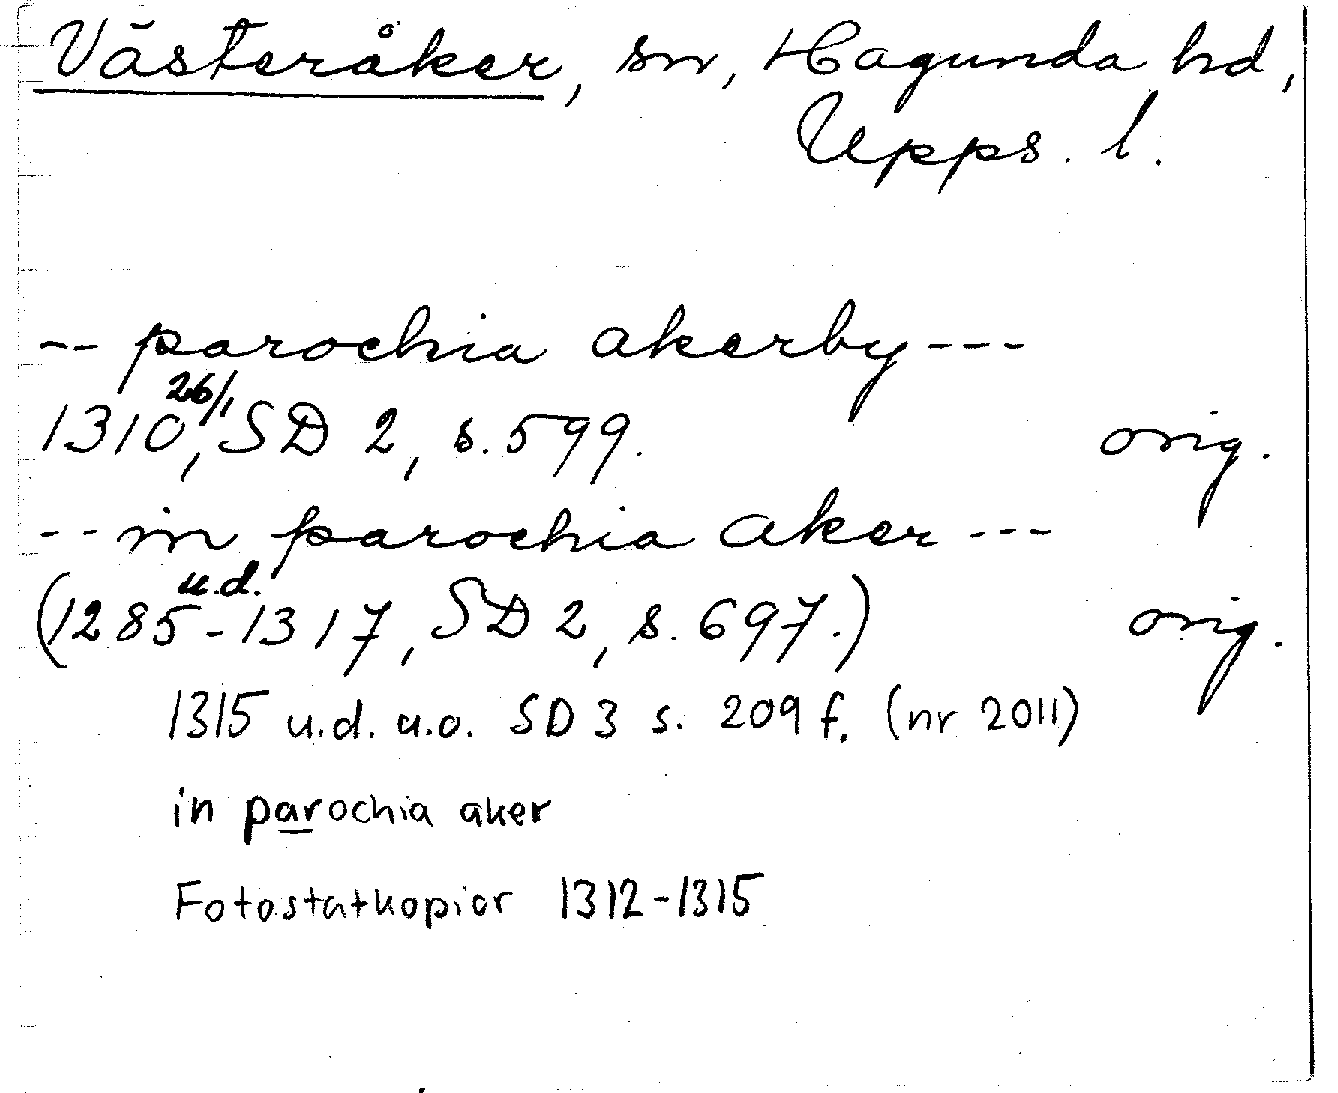 Västeråker, sn, Hagunda hd,
Upps. l.
-- parochia akerby ---
1310 26/1, SD 2, s. 599. orig.
-- in parochia aker ---
(1285 - 1317 u.d., SD 2, s. 697.) orig.
1315 u.d. u.o. SD 3 s. 209 f. (nr 2011)
in parochia aker
Fotostatkopior 1312-1315